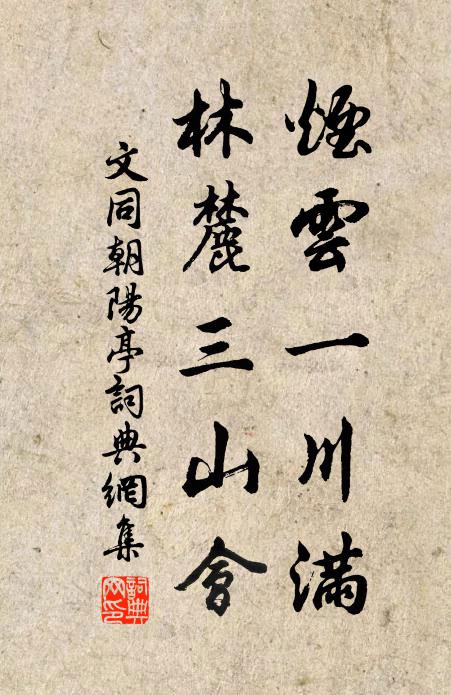 煙雲一川滿
林麓三山會
文同朝陽亭詞典網集
詞典網印